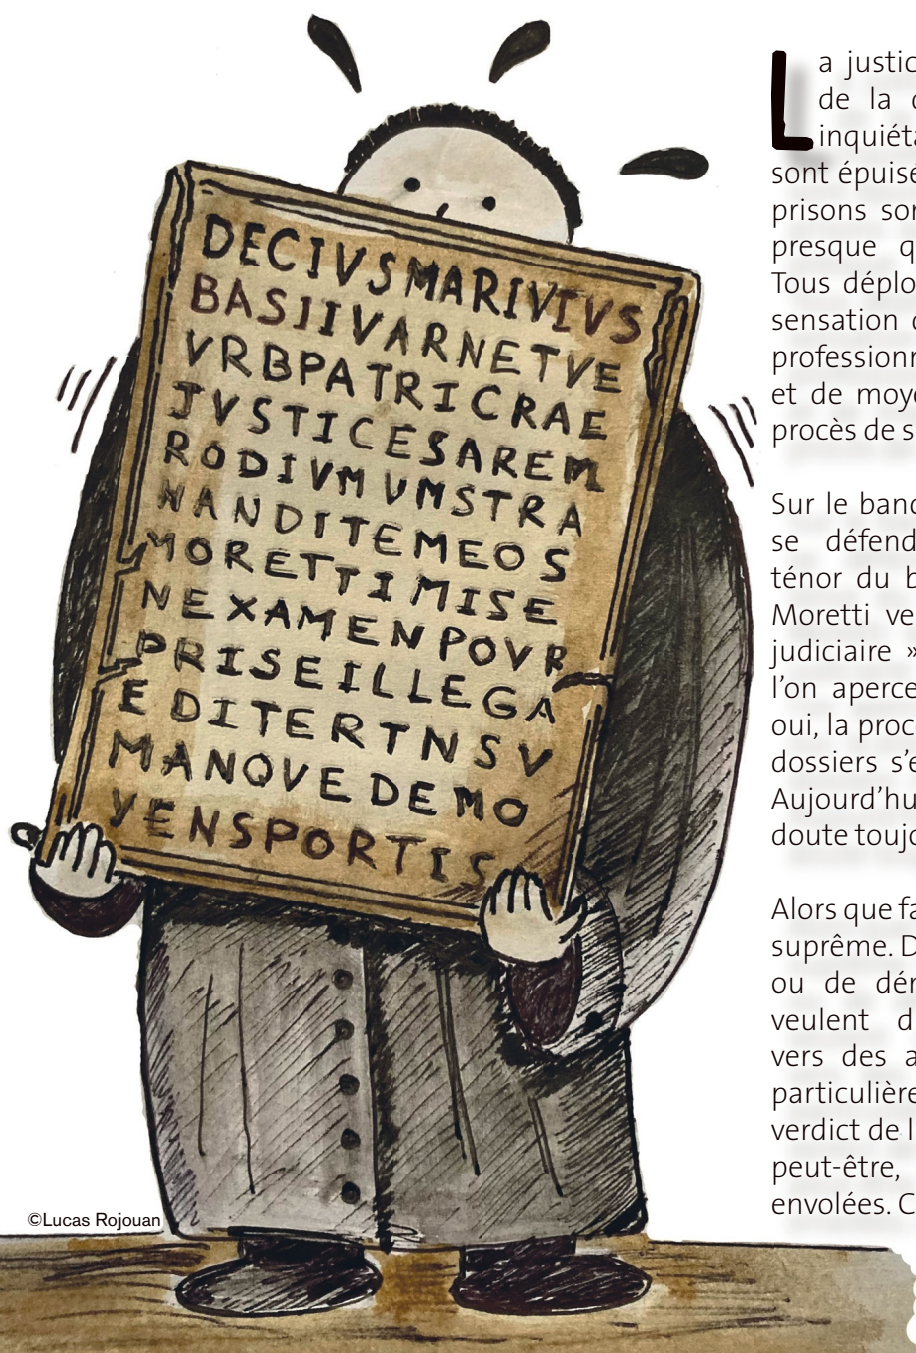 DECIVSMARIVIVS
BASIIVARNETVE
VRBPATRICRAE
JVSTICESAREM
RODIVMVMSTRA
NANDITEMEOS
MORETTIMISE
NEXAMENPOVR
PRISEILLEGA
EDITERTNSV
MANQVEDEMO
YENSPORTIS
©Lucas Rojouan
La justic
de la
inquiéta
sont épuisé
prisons sor
presque q
Tous déplo
sensation
professionn
et de moye
procès de s
Sur le banc
se défend
ténor du b
Moretti ve
judiciaire »
l’on aperce
oui, la proc
dossiers s’e
Aujourd’hu
doute toujo
Alors que fa
suprême. D
ou de dér
veulent d
vers des a
particulière
verdict de l
peut-être,
envolées. C